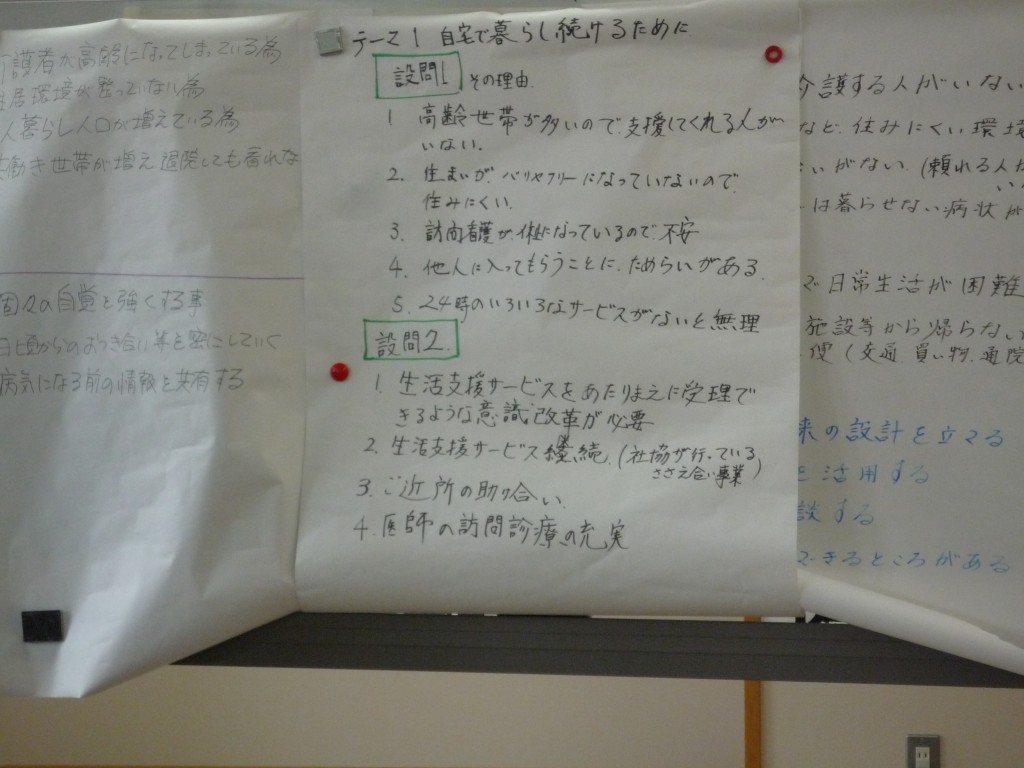 介護者が高齢になってしまっている為
住居環境が整っていない為
人暮らし人口が増えている為
共働き世帯が増え退院しても看れな
個々の自覚を強くする事
日頃からのおつき合い等を密にしていく
病気になる前の情報を共有する
テーマ1 自宅で暮らし続けるために
設問1 その理由
1 高齢世帯が多いので支援してくれる人が
いない.
2. 住まいが、バリヤフリーになっていないので
住みにくい.
3. 訪問看護が、休
になっているので不安
4. 他人に入ってもらうことに、ためらいがある.
5. 24時のいろいろなサービスがないと無理
設問2.
1. 生活支援サービスをあたりまえに受理で
きるような意識改革が必要
2. 生活支援サービスの継続. (社協が行っている
ささえ合い事業)
3. ご近所の助け合い.
4. 医師の訪問診療の充実
介護する人がいない
など、住みにくい環境
いがない. (頼れる人が
い
は暮らせない病状が
で日常生活が困難
施設等から帰らない
便 (交通 買い物 通院
来の設計を立てる
を活用する
談する
できるところがある